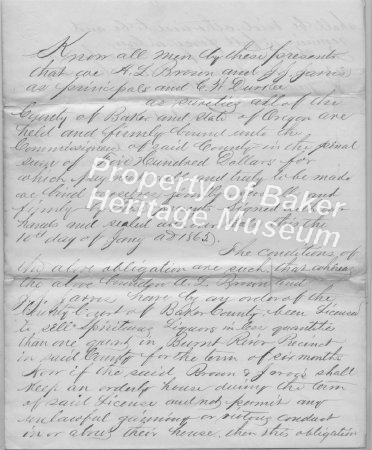 Know all men by these presents
that we A. L. Brown and J. J. Jarvis
as principals and C. W. Durkee
as sureties all of the
County of Baker and State of Oregon are
held and firmly bound unto the
Commissioners of said County in the penal
sum of Five Hundred Dollars for
which payment well and truly to be made
we bind ourselves jointly severally and
firmly by these presents signed with our
hands and sealed with our seals this the
10th day of Jany AD 1865.
The conditions of
the above obligation are such that whereas
the above bounden A. L. Brown and
J. J. Jarvis have by an order of the
County Court of Baker County been Licensed
to sell Spirituous Liquors in less quantities
than one quart in Burnt River Precinct
in said County for the term of six months
Now if the said Brown & Jarvis shall
keep an orderly house during the term
of said License and not permit any
unlawful gaming or riotous conduct
in or about their house, then this obligation
Property of Baker
Heritage Museum